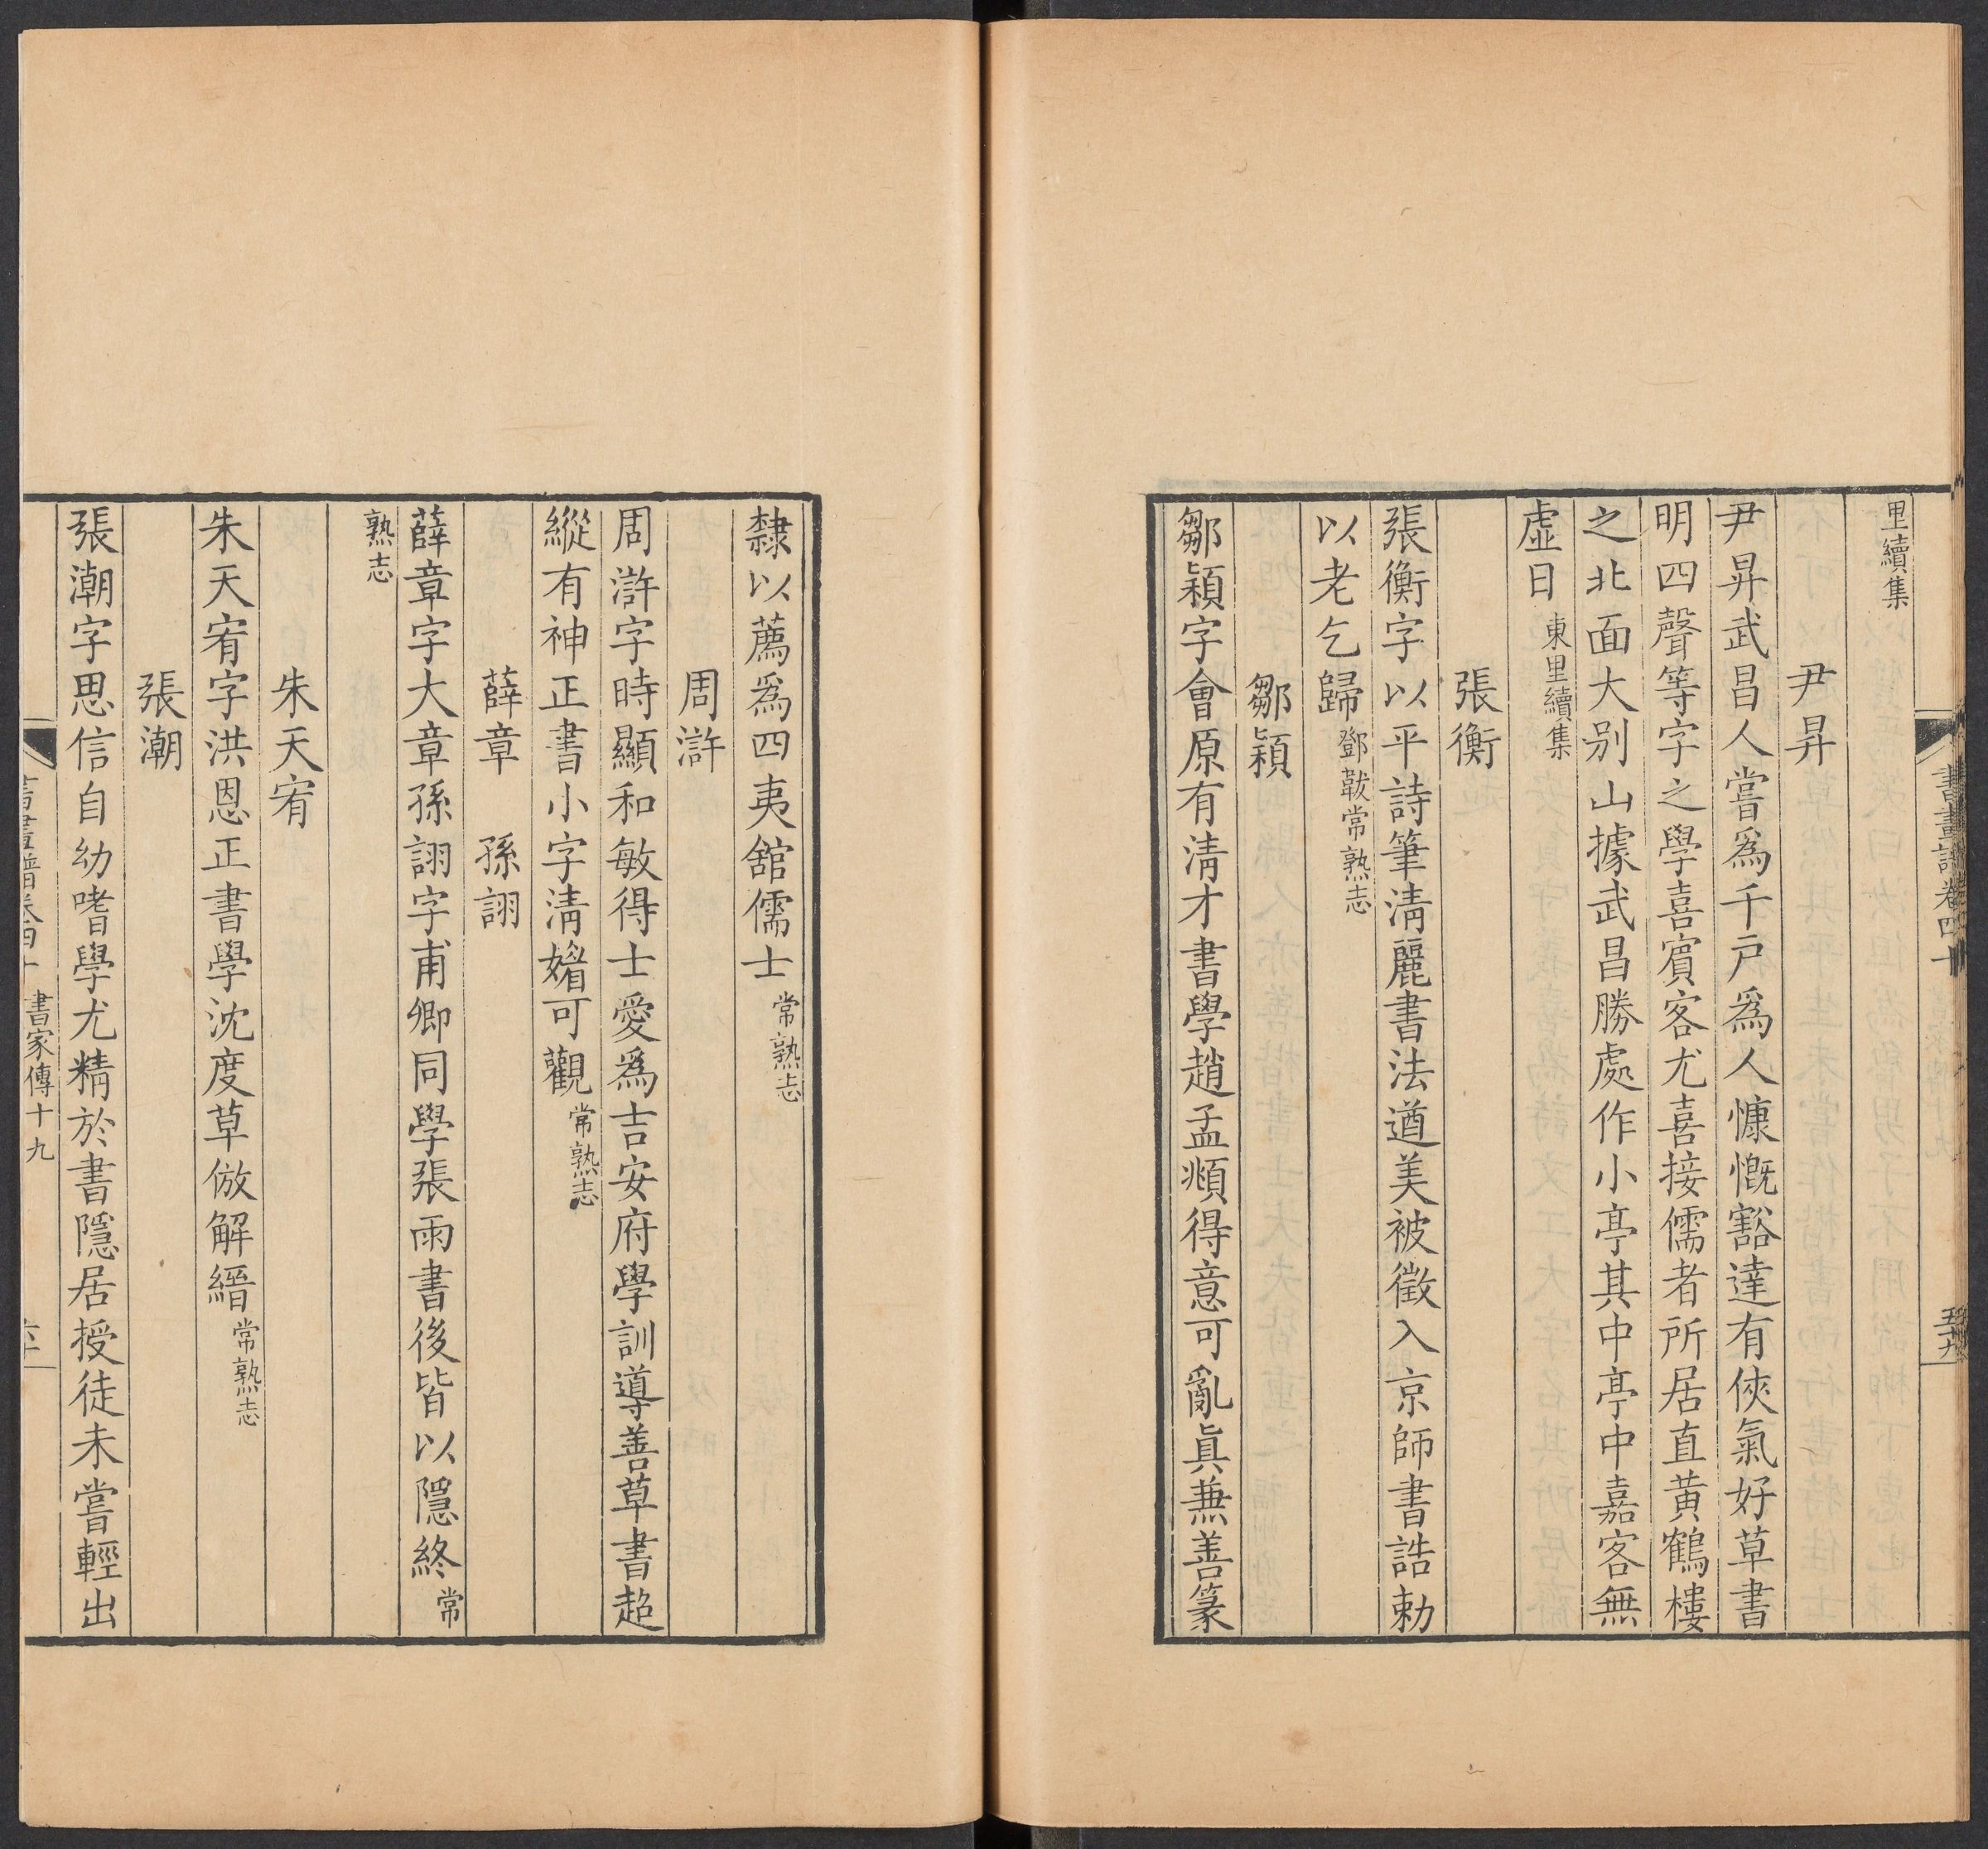 書畫譜卷四十
五十九
里續集
尹昇
尹昇武昌人嘗爲千戸爲人慷慨豁達有俠氣好草書
明四聲等字之學喜賔客尤喜接儒者所居直黄鶴樓
之北面大別山據武昌勝處作小亭其中亭中嘉客無
虛日東里續集
張衡
張衡字以平詩筆淸麗書法遒美被徵入京師書誥勅
以老乞歸鄧韍常熟志
鄒穎
鄒穎字會原有淸才書學趙孟頫得意可亂眞兼善篆
隸以薦爲四夷舘儒士常熟志
周滸
周滸字時顯和敏得士愛爲吉安府學訓導善草書超
縱有神正書小字淸媚可觀常熟志
薛章 孫詡
薛章字大章孫詡字甫卿同學張雨書後皆以隱終常
熟志
朱天宥
朱天宥字洪恩正書學沈度草倣解縉常熟志
張潮
張潮字思信自幼嗜學尤精於書隱居授徒未嘗輕出
書畫譜卷四十 書家傳十九